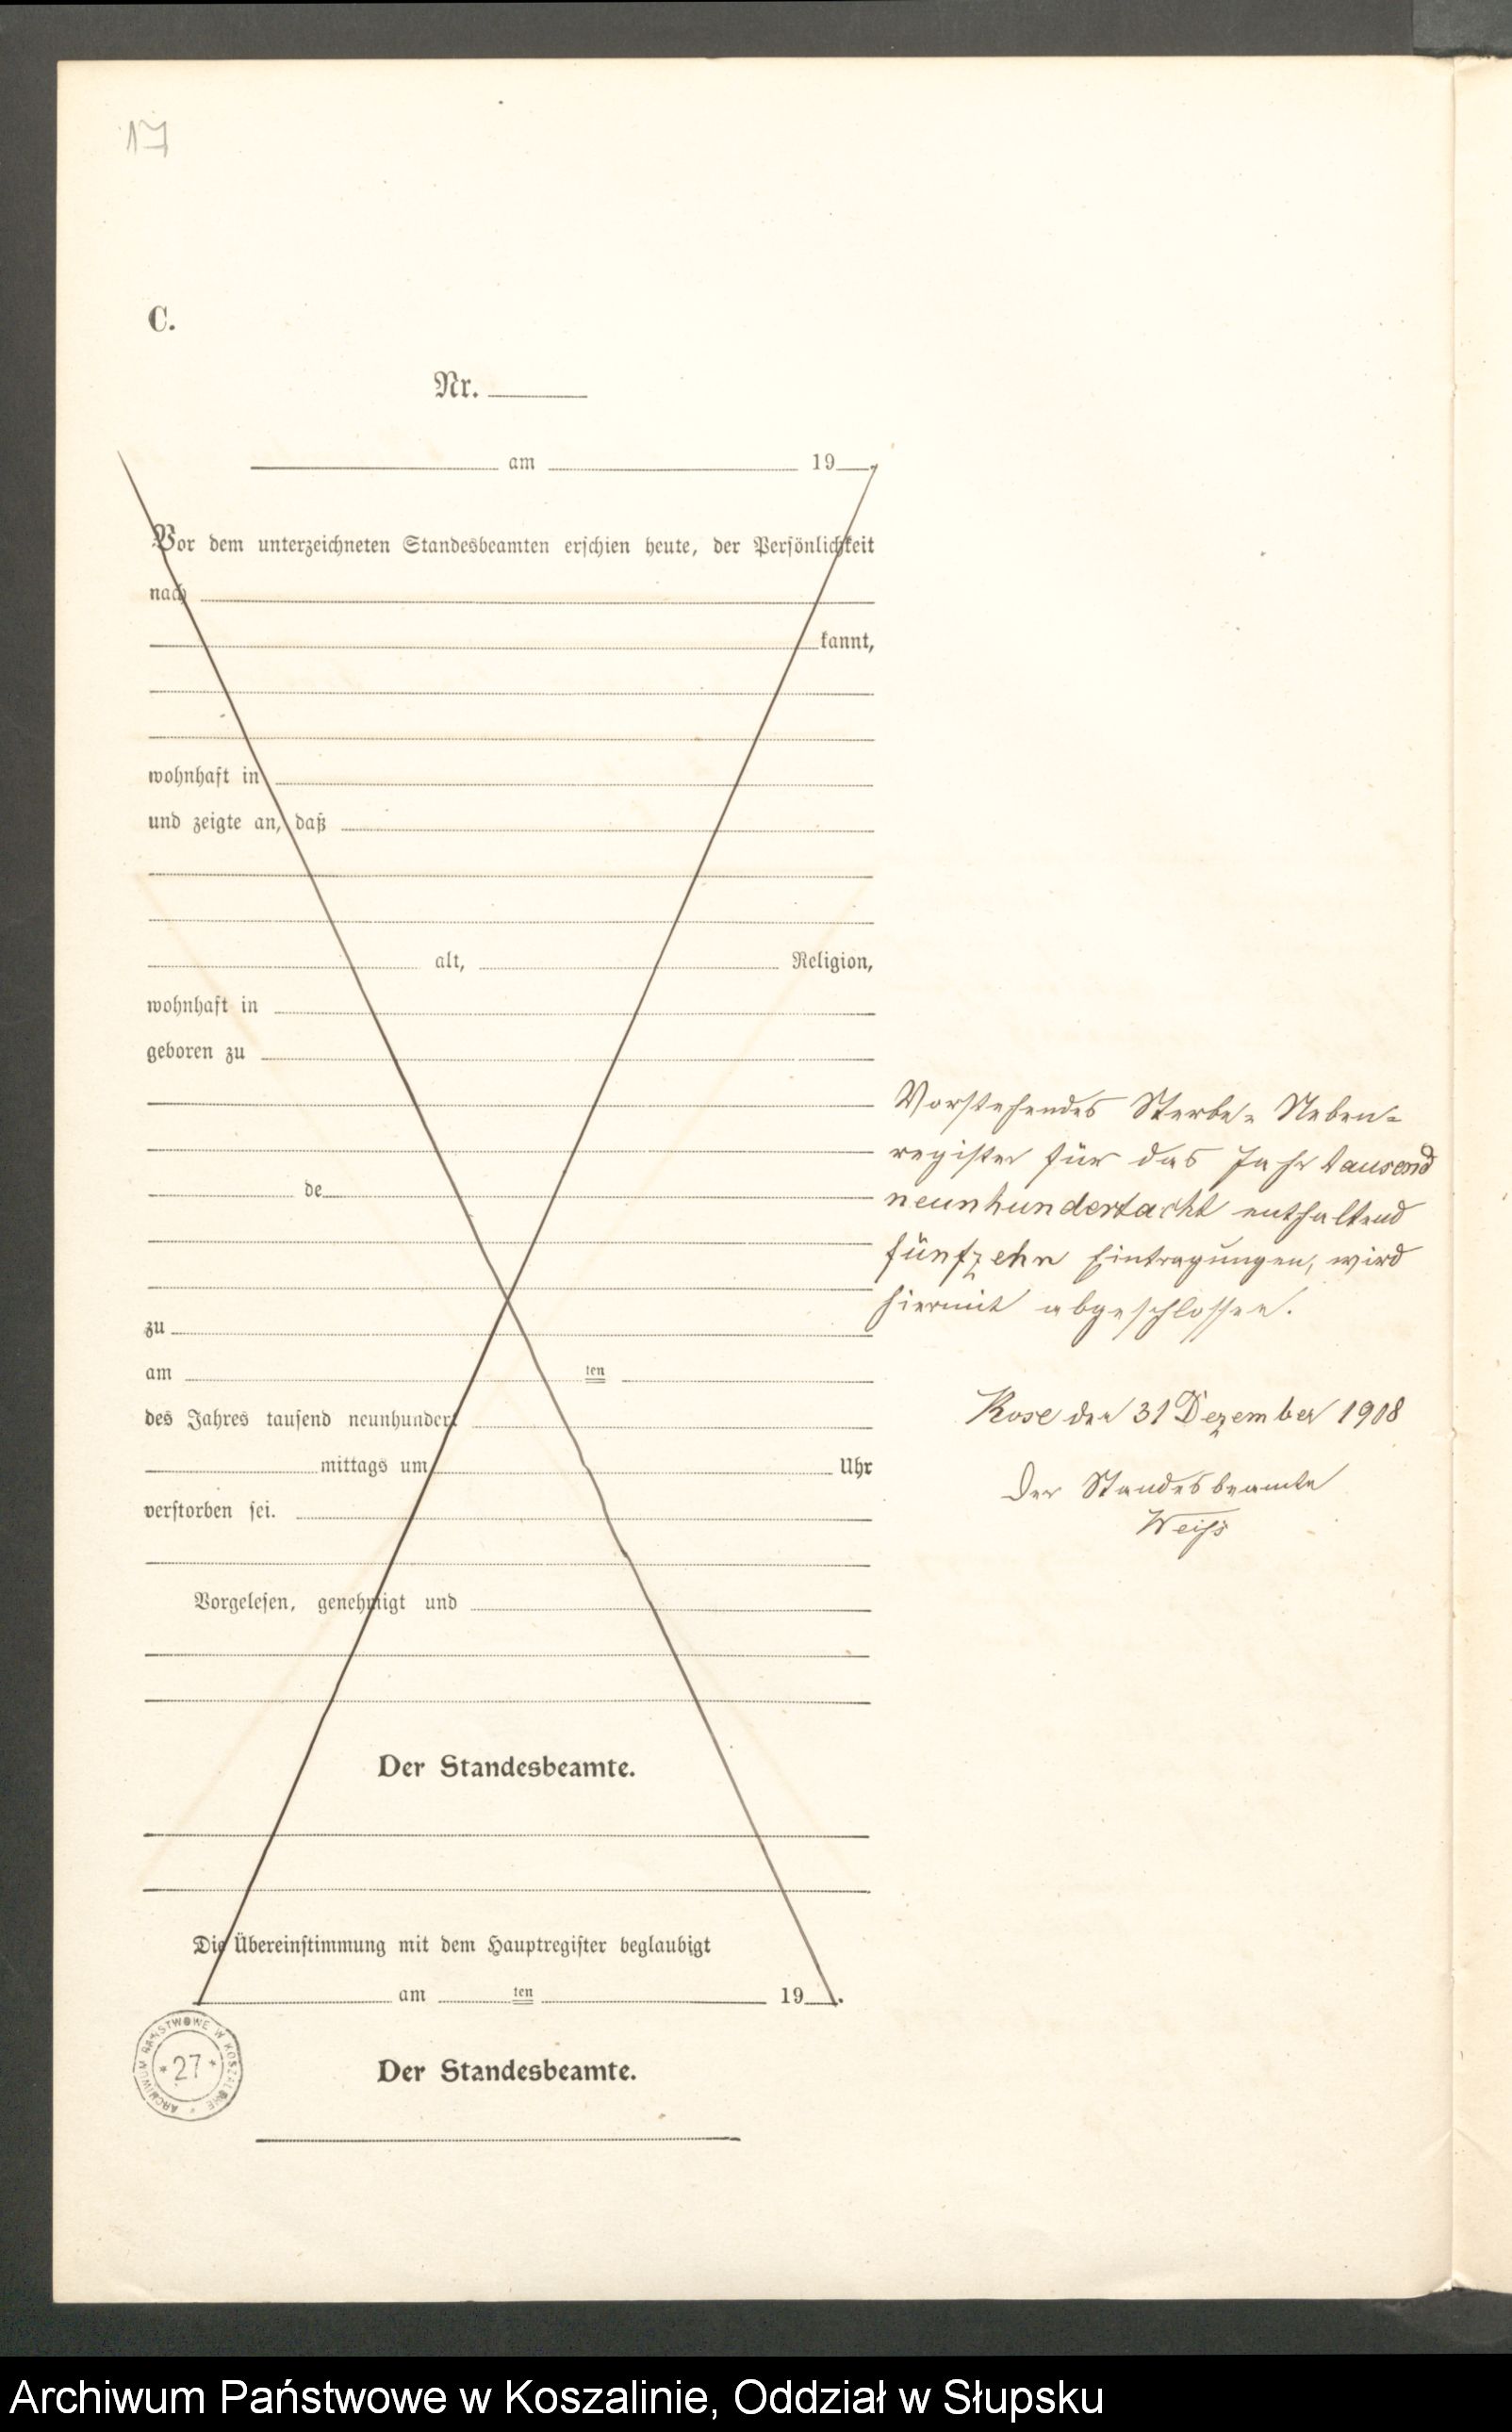 17
C.
Nr.
am 19
Vor dem unterzeichneten Standesbeamten erschien heute, der Persönlichkeit
nach
kannt,
wohnhaft in
und zeigte an, daß
alt, Religion,
wohnhaft in
geboren zu
de
zu
am ten
des Jahres tausend neunhundert
mittags um Uhr
verstorben sei.
Vorgelesen, genehmigt und
Der Standesbeamte.
Die Übereinstimmung mit dem Hauptregister beglaubigt
am ten 19 .
Der Standesbeamte.
Vorstehendes Sterbe- Neben-
register für das Jahr tausend
neunhundertacht enthaltend
fünfzehn Eintragungen, wird
hiermit abgeschlossen.
Rose den 31 Dezember 1908
Der Standesbeamte
Weiß
ARCHIWUM PAŃSTWOWE W KOSZALINIE
* 27 *
Archiwum Państwowe w Koszalinie, Oddział w Słupsku